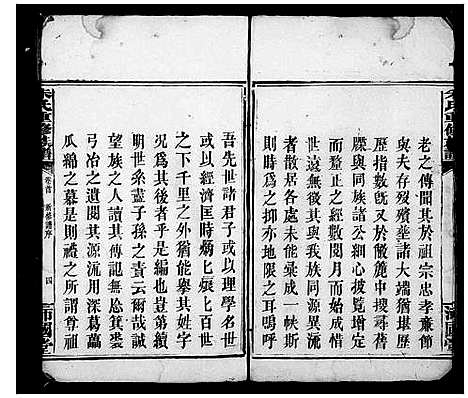 老之傳聞其於祖宗忠孝廉節
與夫存歿殯葬諸大端猶堪歷
歷指數旣又於敝簏中搜尋舊
牒與同族諸公細心披覽增定
而釐正之經數閱月而始成惜
世遠無徵其與我族同源異流
者散居各處未能彙成一帙斯
則時爲之抑亦地限之耳嗚呼
吾先世諸君子或以理學名世
或以經濟匡時炳匕烺匕百世
之下千里之外猶能舉其姓字
況爲其後者乎是編也豈第續
明世系藎子孫之責云爾哉誠
望族之人讀其傳記無忝箕裘
弓冶之遺閱其源流用深葛藟
瓜綿之慕是則禮之所謂尊祖
卷首 新修譜序
四